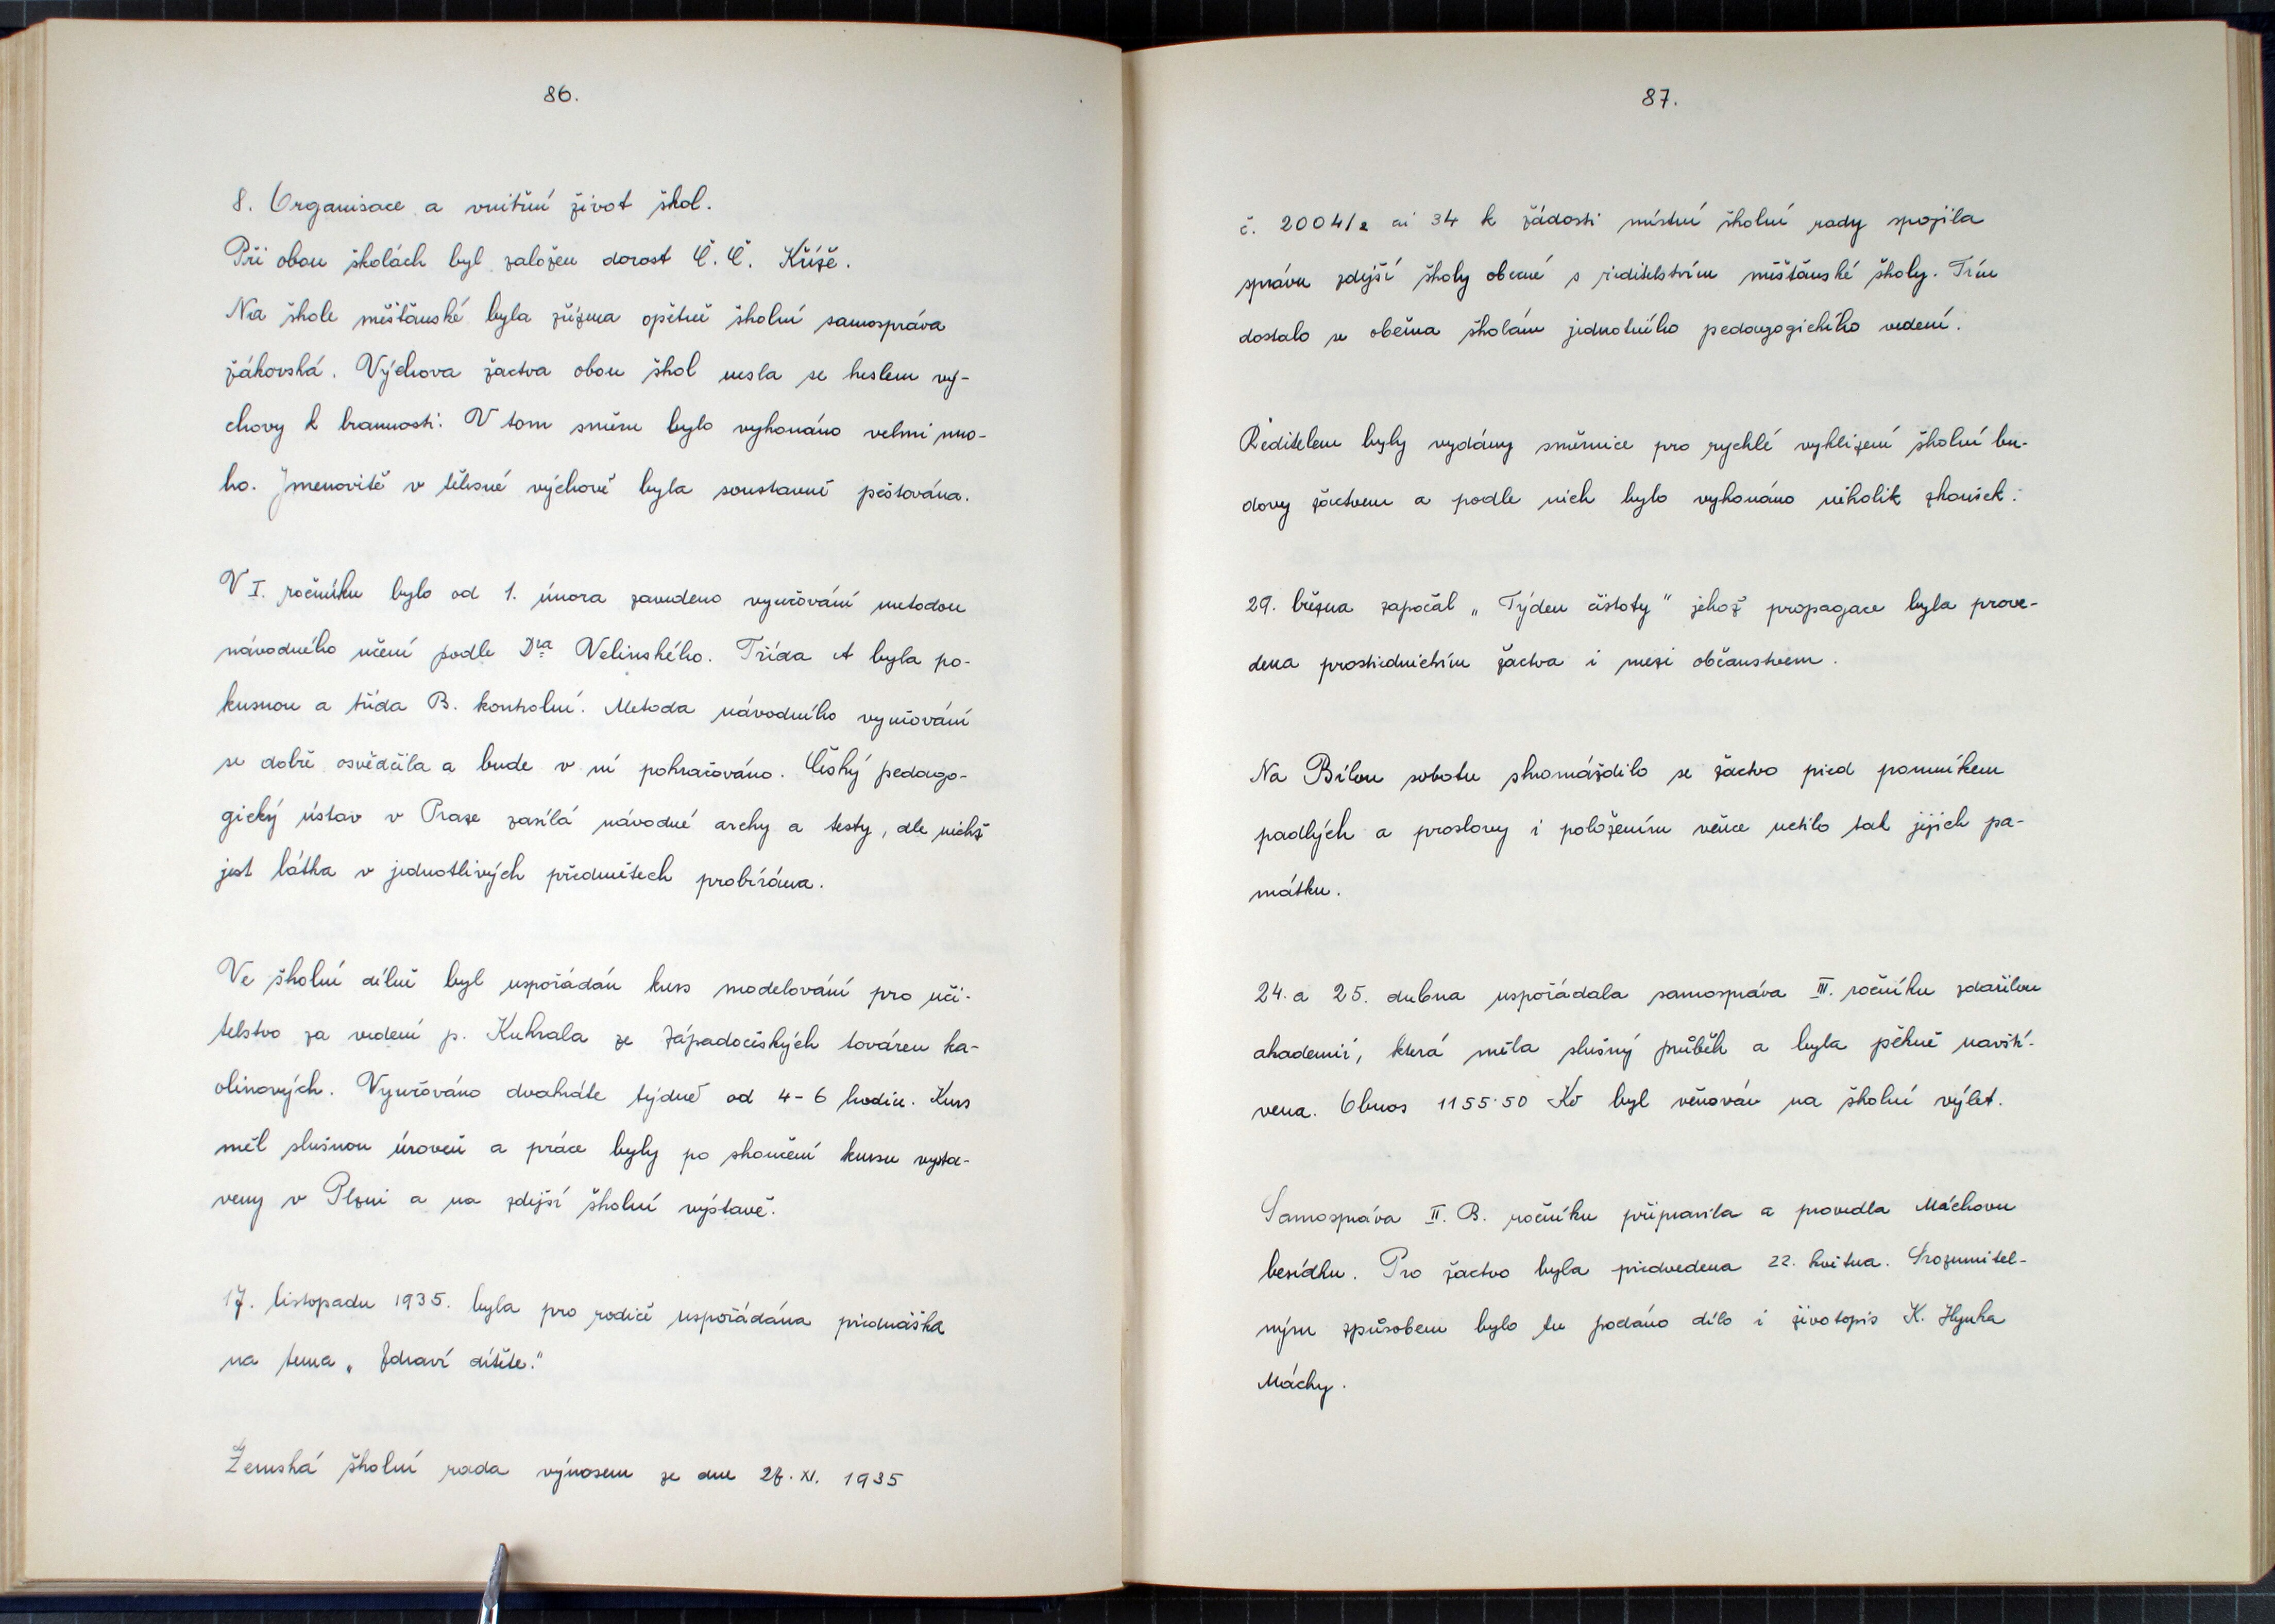 86.
8. Organisace a vnitřní život škol.
Při obou školách byl založen dorost Č. Č. Kříže.
Na škole měšťanské byla zřízena opětně školní samospráva
žákovská. Výchova žactva obou škol nesla se heslem vý-
chovy k brannosti. V tom směru bylo vykonáno velmi mno-
ho. Jmenovitě v tělesné výchově byla soustavně pěstována.
V I. ročníku bylo od 1. února zavedeno vyučování metodou
návodného učení podle Dra Velinského. Třída A byla po-
kusnou a třída B. kontrolní. Metoda návodného vyučování
se dobře osvědčila a bude v ní pokračováno. Český pedago-
gický ústav v Praze zasílá návodné archy a testy, dle nichž
jest látka v jednotlivých předmětech probírána.
Ve školní dílně byl uspořádán kurs modelování pro uči-
telstvo za vedení p. Kukrala ze Západočeských továren ka-
olinových. Vyučováno dvakráte týdně od 4-6 hodin. Kurs
měl slušnou úroveň a práce byly po skončení kursu vysta-
veny v Plzni a na zdejší školní výstavě.
17. listopadu 1935. byla pro rodiče uspořádána přednáška
na tema „Zdraví dítěte."
Zemská školní rada výnosem ze dne 27. XI. 1935
87.
č. 2004/2 ai 34 k žádosti místní školní rady spojila
správu zdejší školy obecné s ředitelstvím měšťanské školy. Tím
dostalo se oběma školám jednotného pedagogického vedení.
Ředitelem byly vydány směrnice pro rychlé vyklizení školní bu-
dovy žactvem a podle nich bylo vykonáno několik zkoušek.
29. března započal „Týden čistoty" jehož propagace byla prove-
dena prostřednictvím žactva i mezi občanstvem.
Na Bílou sobotu shromáždilo se žactvo před pomníkem
padlých a proslovy i položením věnce uctilo tak jejich pa-
mátku.
24. a 25. dubna uspořádala samospráva III. ročníku zdařilou
akademii, která měla slušný průběh a byla pěkně navští-
vena. Obnos 1155·50 Kč byl věnován na školní výlet.
Samospráva II. B. ročníku připravila a provedla Máchovu
besídku. Pro žactvo byla předvedena 22. května. Srozumitel-
ným způsobem bylo tu podáno dílo i životopis K. Hynka
Máchy.